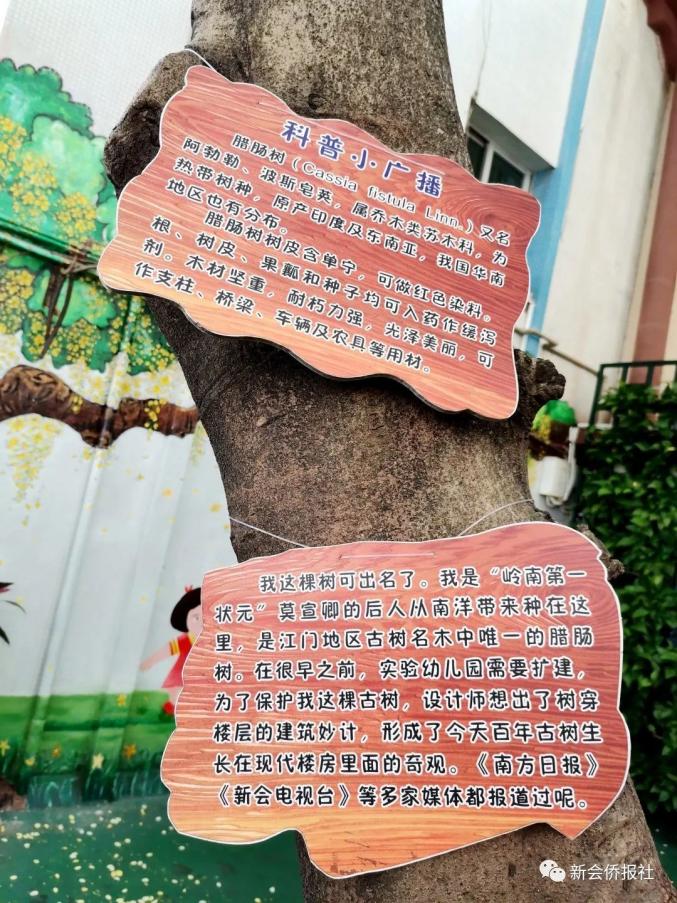 科普小广播
腊肠树（Cassia fistula Linn.）又名
阿勃勒、波斯皂荚，属乔木类苏木科，为
热带树种，原产印度及东南亚，我国华南
地区也有分布。
腊肠树树皮含单宁，可做红色染料。
根、树皮、果瓤和种子均可入药作缓泻
剂。木材坚重，耐朽力强，光泽美丽，可
作支柱、桥梁、车辆及农具等用材。
我这棵树可出名了。我是“岭南第一
状元”莫宣卿的后人从南洋带来种在这
里，是江门地区古树名木中唯一的腊肠
树。在很早之前，实验幼儿园需要扩建，
为了保护我这棵古树，设计师想出了树穿
楼层的建筑妙计，形成了今天百年古树生
长在现代楼房里面的奇观。《南方日报》
《新会电视台》等多家媒体都报道过呢。
新会侨报社